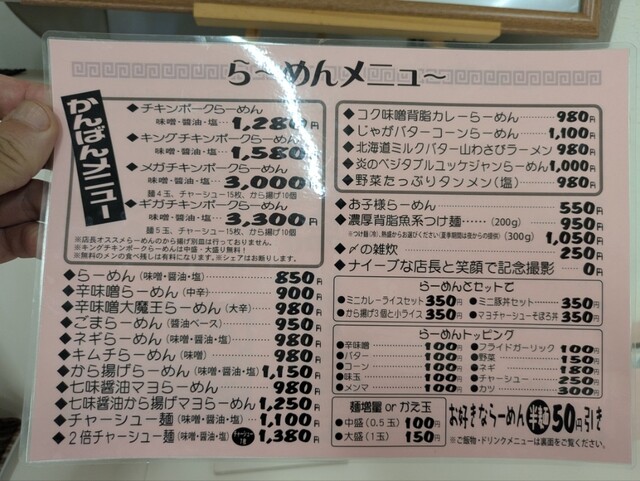 らーめんメニュー
かんばんメニュー
◆チキンポークらーめん
味噌・醤油・塩… 1,280円
◆キングチキンポークらーめん
味噌・醤油・塩… 1,580円
◆メガチキンポークらーめん
味噌・醤油・塩… 3,000円
麺4玉、チャーシュー15枚、から揚げ10個
◆ギガチキンポークらーめん
味噌・醤油・塩… 3,300円
麺5玉、チャーシュー15枚、から揚げ10個
※店長オススメらーめんのから揚げ別皿は行っておりません。
※キングチキンポークらーめんは中盛・大盛り無料!
※無料のメンの食べ残しは有料になります。※シェアはお断りします。
◆らーめん(味噌・醤油・塩) 850円
◆辛味噌らーめん(中辛) 900円
◆辛味噌大魔王らーめん(大辛) 980円
◆ごまらーめん(醤油ベース) 950円
◆ネギらーめん(味噌・醤油・塩) 980円
◆キムチらーめん(味噌) 980円
◆から揚げらーめん(味噌・醤油・塩) 1,150円
◆七味醤油マヨらーめん 980円
◆七味醤油から揚げマヨらーめん 1,250円
◆チャーシュー麺(味噌・醤油・塩) 1,100円
◆2倍チャーシュー麺(味噌・醤油・塩) 1,380円
◆コク味噌背脂カレーらーめん 980円
◆じゃがバターコーンらーめん 1,100円
◆北海道ミルクバター山わさびラーメン 980円
◆炎のベジタブルユッケジャンらーめん 1,000円
◆野菜たっぷりタンメン(塩) 980円
◆お子様らーめん 550円
◆濃厚背脂魚系つけ麺……(200g) 950円
※つけ麺(冷)、熱盛からお選びください(夏季期間は夜からの提供) (300g) 1,050円
◆〆の雑炊 250円
◆ナイーブな店長と笑顔で記念撮影 0円
らーめんとセットで
●ミニカレーライスセット 350円 ●ミニ豚丼セット 350円
●から揚げ3個と小ライス 350円 ●マヨチャーシューそぼろ丼 350円
らーめんトッピング
●辛味噌 100円 ●フライドガーリック 100円
●バター 100円 ●野菜 150円
●コーン 100円 ●ネギ 180円
●味玉 100円 ●チャーシュー 250円
●メンマ 100円 ●カツ 300円
麺増量 or かえ玉
●中盛(0.5玉) 100円
●大盛(1玉) 150円
お好きならーめん 半麺 50円引き
※ご飯物・ドリンクメニューは裏面をご覧ください。